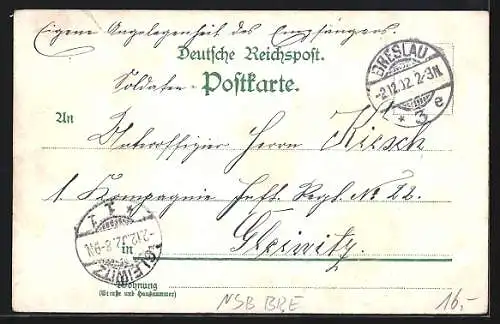 Eigene Angelegenheit des Empfängers.
Deutsche Reichspost.
Soldaten-
Postkarte.
BRESLAU
-2.12.02.2-3N.
* 3 e
An
Unteroffizier Herrn Kirsch
1. Kompagnie Inft. Regt. No 22.
in Gleiwitz.
GLEIWITZ
2.12.02.8-9N.
* 1 1
Wohnung
(Straße und Hausnummer)
NSB BRE
16,-